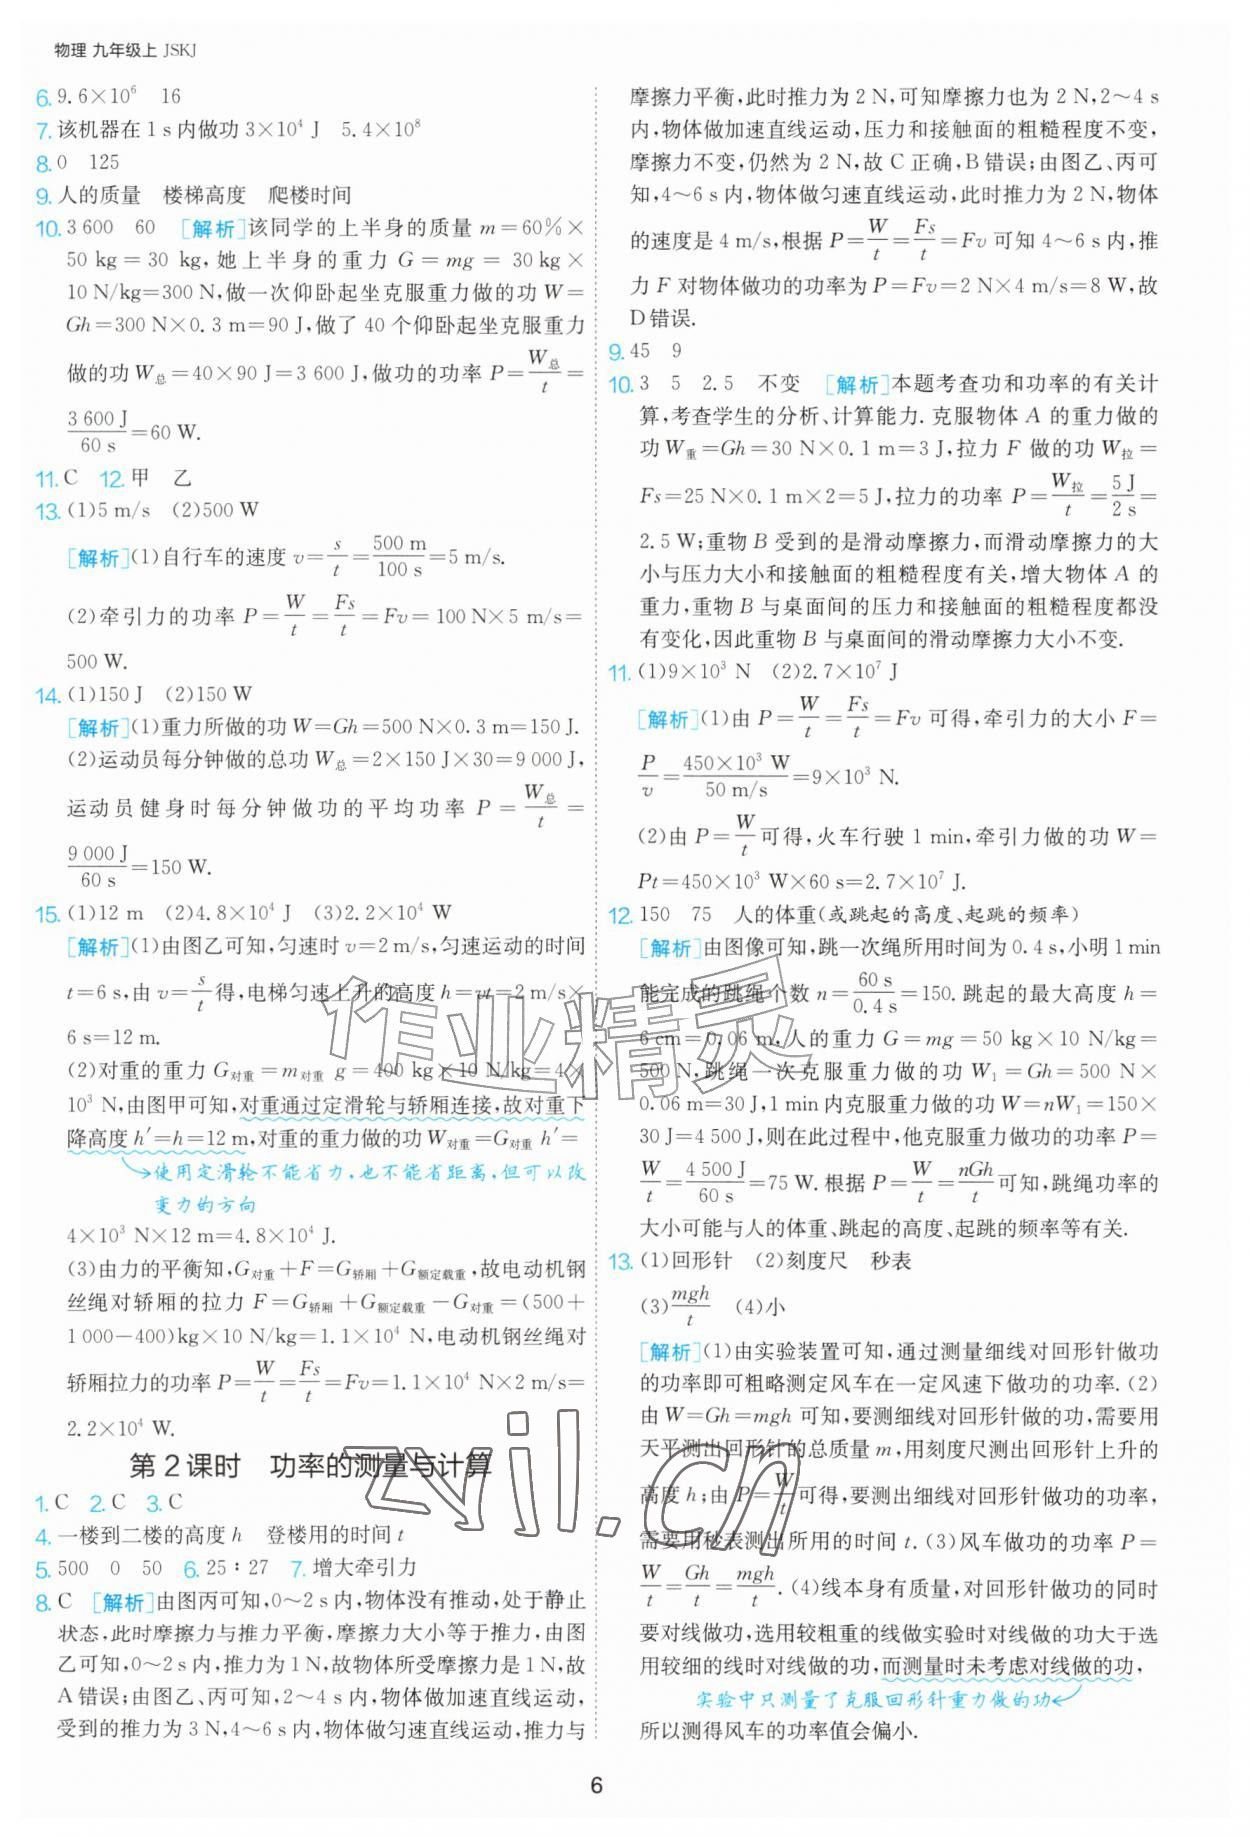 物理 九年级上 JSKJ
6. 9.6×10⁶ 16
7. 该机器在 1 s 内做功 3×10⁴ J 5.4×10⁸
8. 0 125
9. 人的质量 楼梯高度 爬楼时间
10. 3 600 60 [解析]该同学的上半身的质量 m=60%×
50 kg=30 kg,她上半身的重力 G=mg=30 kg×
10 N/kg=300 N,做一次仰卧起坐克服重力做的功 W=
Gh=300 N×0.3 m=90 J,做了 40 个仰卧起坐克服重力
做的功 W总=40×90 J=3 600 J,做功的功率 P=W总/t=
3 600 J/60 s=60 W.
11. C 12. 甲 乙
13. (1)5 m/s (2)500 W
[解析](1)自行车的速度 v=s/t=500 m/100 s=5 m/s.
(2)牵引力的功率 P=W/t=Fs/t=Fv=100 N×5 m/s=
500 W.
14. (1)150 J (2)150 W
[解析](1)重力所做的功 W=Gh=500 N×0.3 m=150 J.
(2)运动员每分钟做的总功 W总=2×150 J×30=9 000 J,
运动员健身时每分钟做功的平均功率 P=W总/t=
9 000 J/60 s=150 W.
15. (1)12 m (2)4.8×10⁴ J (3)2.2×10⁴ W
[解析](1)由图乙可知,匀速时 v=2 m/s,匀速运动的时间
t=6 s,由 v=s/t得,电梯匀速上升的高度 h=vt=2 m/s×
6 s=12 m.
(2)对重的重力 G对重=m对重 g=400 kg×10 N/kg=4×
10³ N,由图甲可知,对重通过定滑轮与轿厢连接,故对重下
降高度 h′=h=12 m,对重的重力做的功 W对重=G对重 h′=
使用定滑轮不能省力,也不能省距离,但可以改
变力的方向
4×10³ N×12 m=4.8×10⁴ J.
(3)由力的平衡知,G对重+F=G轿厢+G额定载重,故电动机钢
丝绳对轿厢的拉力 F=G轿厢+G额定载重-G对重=(500+
1 000-400)kg×10 N/kg=1.1×10⁴ N,电动机钢丝绳对
轿厢拉力的功率 P=W/t=Fs/t=Fv=1.1×10⁴ N×2 m/s=
2.2×10⁴ W.
第 2 课时 功率的测量与计算
1. C 2. C 3. C
4. 一楼到二楼的高度 h 登楼用的时间 t
5. 500 0 50 6. 25∶27 7. 增大牵引力
8. C [解析]由图丙可知,0～2 s 内,物体没有推动,处于静止
状态,此时摩擦力与推力平衡,摩擦力大小等于推力,由图
乙可知,0～2 s 内,推力为 1 N,故物体所受摩擦力是 1 N,故
A 错误;由图乙、丙可知,2～4 s 内,物体做加速直线运动,
受到的推力为 3 N,4～6 s 内,物体做匀速直线运动,推力与
摩擦力平衡,此时推力为 2 N,可知摩擦力也为 2 N,2～4 s
内,物体做加速直线运动,压力和接触面的粗糙程度不变,
摩擦力不变,仍然为 2 N,故 C 正确,B 错误;由图乙、丙可
知,4～6 s 内,物体做匀速直线运动,此时推力为 2 N,物体
的速度是 4 m/s,根据 P=W/t=Fs/t=Fv 可知 4～6 s 内,推
力 F 对物体做功的功率为 P=Fv=2 N×4 m/s=8 W,故
D 错误.
9. 45 9
10. 3 5 2.5 不变 [解析]本题考查功和功率的有关计
算,考查学生的分析、计算能力.克服物体 A 的重力做的
功 W重=Gh=30 N×0.1 m=3 J,拉力 F 做的功 W拉=
Fs=25 N×0.1 m×2=5 J,拉力的功率 P=W拉/t=5 J/2 s=
2.5 W;重物 B 受到的是滑动摩擦力,而滑动摩擦力的大
小与压力大小和接触面的粗糙程度有关,增大物体 A 的
重力,重物 B 与桌面间的压力和接触面的粗糙程度都没
有变化,因此重物 B 与桌面间的滑动摩擦力大小不变.
11. (1)9×10³ N (2)2.7×10⁷ J
[解析](1)由 P=W/t=Fs/t=Fv 可得,牵引力的大小 F=
P/v=450×10³ W/50 m/s=9×10³ N.
(2)由 P=W/t可得,火车行驶 1 min,牵引力做的功 W=
Pt=450×10³ W×60 s=2.7×10⁷ J.
12. 150 75 人的体重(或跳起的高度、起跳的频率)
[解析]由图像可知,跳一次绳所用时间为 0.4 s,小明 1 min
能完成的跳绳个数 n=60 s/0.4 s=150.跳起的最大高度 h=
6 cm=0.06 m,人的重力 G=mg=50 kg×10 N/kg=
500 N,跳绳一次克服重力做的功 W₁=Gh=500 N×
0.06 m=30 J,1 min 内克服重力做的功 W=nW₁=150×
30 J=4 500 J,则在此过程中,他克服重力做功的功率 P=
W/t=4 500 J/60 s=75 W.根据 P=W/t=nGh/t可知,跳绳功率的
大小可能与人的体重、跳起的高度、起跳的频率等有关.
13. (1)回形针 (2)刻度尺 秒表
(3)mgh/t (4)小
[解析](1)由实验装置可知,通过测量细线对回形针做功
的功率即可粗略测定风车在一定风速下做功的功率.(2)
由 W=Gh=mgh 可知,要测细线对回形针做的功,需要用
天平测出回形针的总质量 m,用刻度尺测出回形针上升的
高度 h;由 P=W/t可得,要测出细线对回形针做功的功率,
需要用秒表测出所用的时间 t.(3)风车做功的功率 P=
W/t=Gh/t=mgh/t.(4)线本身有质量,对回形针做功的同时
要对线做功,选用较粗重的线做实验时对线做的功大于选
用较细的线时对线做的功,而测量时未考虑对线做的功,
实验中只测量了克服回形针重力做的功
所以测得风车的功率值会偏小.
作业精灵
zyjl.cn
6